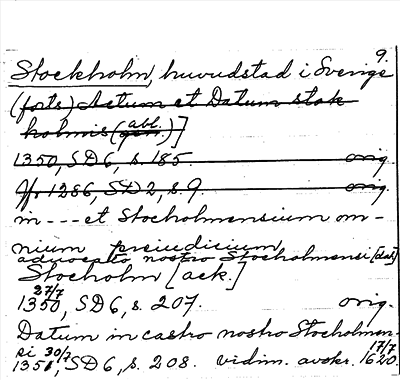 9.
Stockholm, huvudstad i Sverige
(forts) Actum et Datum stok
holmis (gen.) abl.]
1350, SD 6, s. 185. orig.
Jfr 1286, SD 2, s. 9. orig.
in --- et Stocholmensium om-
nium preiudicium
advocato nostro Stocholmensi [dat]
Stockholm [ack.]
27/7
1350, SD 6, s. 207. orig.
Datum in castro nostro Stocholmen-
si 30/7 17/7
1351, SD 6, s. 208. vidim. avskr. 1620.